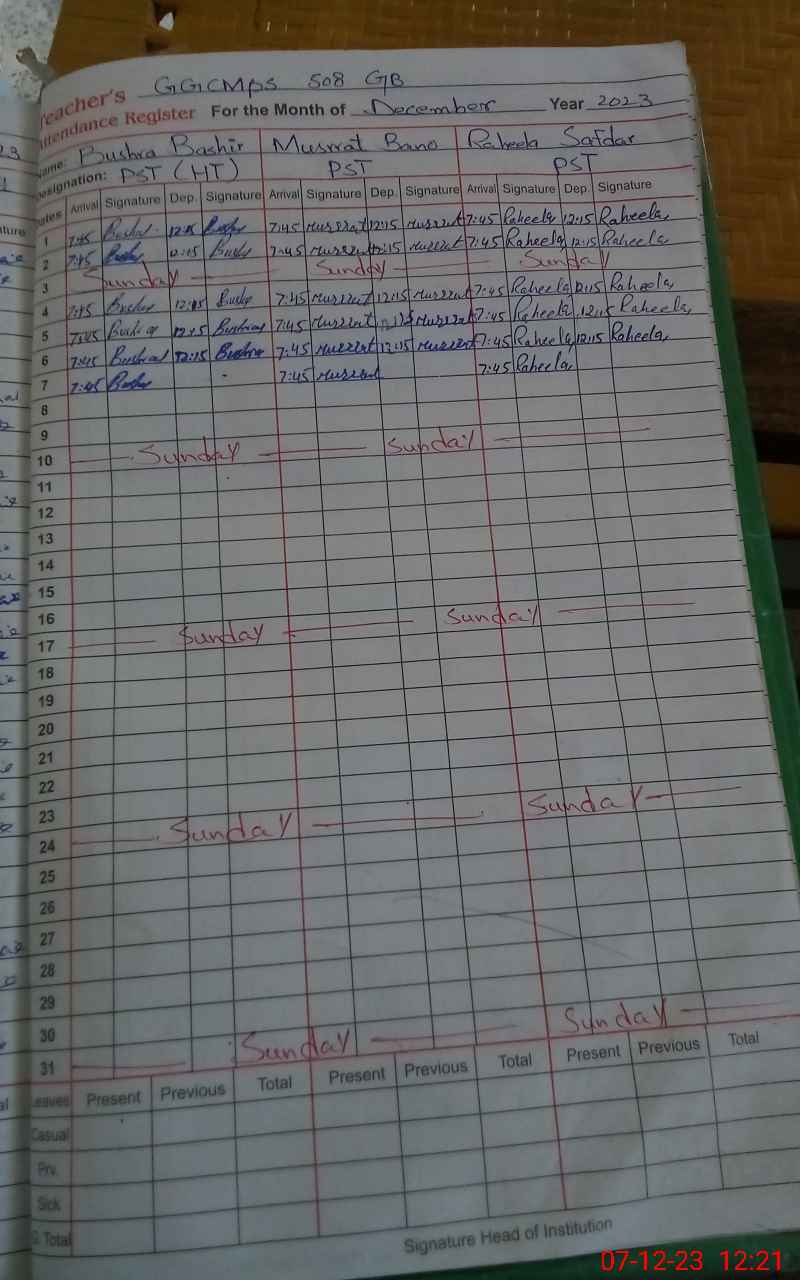 Teacher's GGCMPS 508 GB
Attendance Register For the Month of December Year 2023
Name: Bushra Bashir Musrrat Bano Raheela Safdar
Designation: PST (HT) PST PST
Dates Arrival Signature Dep. Signature Arrival Signature Dep. Signature Arrival Signature Dep. Signature
1 7:45 Bushra 12:15 Bushra 7:45 Musrrat 12:15 Musrrat 7:45 Raheela 12:15 Raheela
2 7:45 Bushra 12:15 Bushra 7:45 Musrrat 12:15 Musrrat 7:45 Raheela 12:15 Raheela
3 Sunday Sunday Sunday
4 7:45 Bushra 12:15 Bushra 7:45 Musrrat 12:15 Musrrat 7:45 Raheela 12:15 Raheela
5 7:45 Bushra 12:15 Bushra 7:45 Musrrat 12:15 Musrrat 7:45 Raheela 12:15 Raheela
6 7:45 Bushra 12:15 Bushra 7:45 Musrrat 12:15 Musrrat 7:45 Raheela 12:15 Raheela
7 7:45 Bushra 7:45 Musrrat 7:45 Raheela
8
9
10 Sunday Sunday
11
12
13
14
15
16
17 Sunday Sunday
18
19
20
21
22
23
24 Sunday Sunday
25
26
27
28
29
30
31 Sunday Sunday
Leaves Present Previous Total Present Previous Total Present Previous Total
Casual
Prv.
Sick
G. Total
Signature Head of Institution
07-12-23 12:21